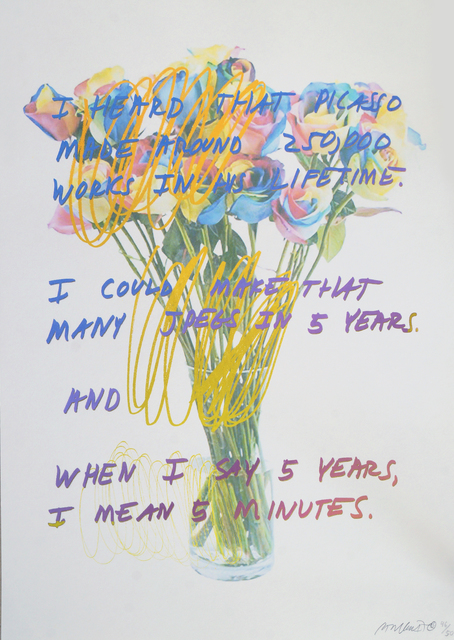 I HEARD THAT PICASSO
MADE AROUND 250,000
WORKS IN HIS LIFETIME.
I COULD MAKE THAT
MANY JPEGS IN 5 YEARS.
AND
WHEN I SAY 5 YEARS,
I MEAN 5 MINUTES.